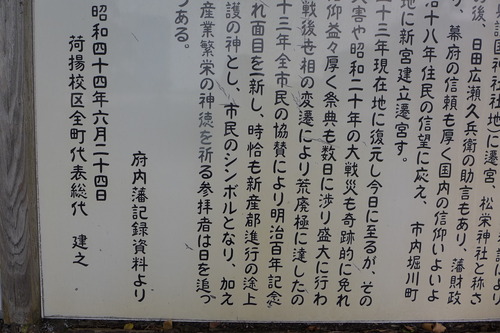 より
神社社地に遷宮、松栄神社と称さ
の後、日田広瀬久兵衛の助言もあり、藩財政
り、幕府の信頼も厚く国内の信仰いよいよ
治十八年住民の信望に応え、市内堀川町
地に新宮建立遷宮す。
二十三年現在地に復元し今日に至るが、その
災害や昭和二十年の大戦災も奇跡的に免れ
仰益々厚く祭典も数日に渉り盛大に行わ
戦後世相の変遷により荒廃極に達したの
十三年全市民の協賛により明治百年記念
れ面目を一新し、時恰も新産都進行の途上
護の神とし、市民のシンボルとなり、加え
産業繁栄の神徳を祈る参拝者は日を追っ
つある。
府内藩記録資料より
昭和四十四年六月二十四日
荷揚校区全町代表総代 建之